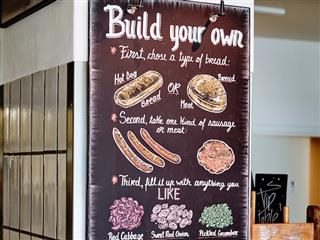 Build your own
* First, chose a type of bread:
Hot Dog Bread OR Meat Bread
* Second, take one kind of sausage
or meat:
* Third, fill it up with anything you
LIKE
Red Cabbage Sweet Red Onion Pickled Cucumber